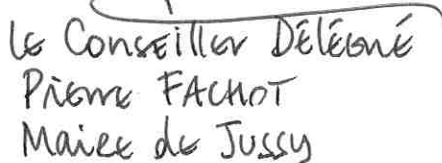 Le Conseiller Délégué
Pierre FACHOT
Maire de Jussy